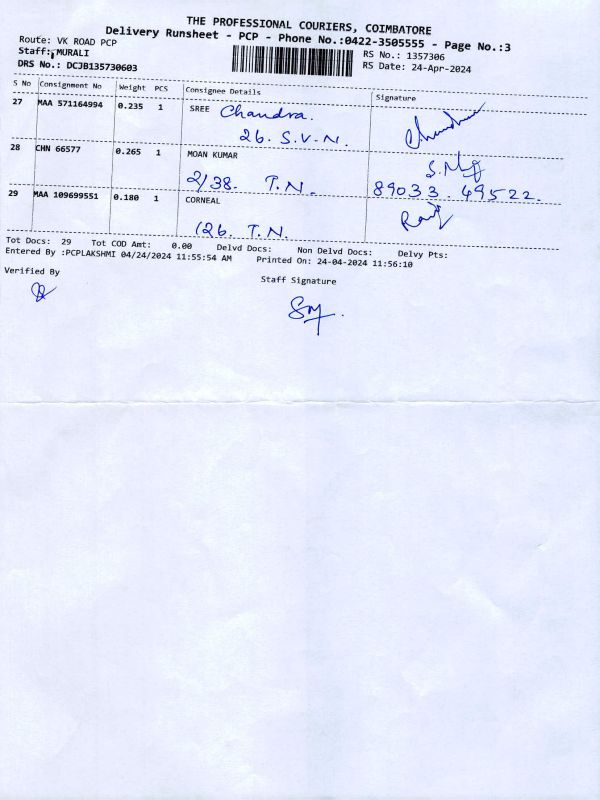 THE PROFESSIONAL COURIERS, COIMBATORE
Delivery Runsheet - PCP - Phone No.:0422-3505555 - Page No.:3
Route: VK ROAD PCP
RS No.: 1357306
Staff: MURALI
RS Date: 24-Apr-2024
DRS No.: DCJB135730603
S No Consignment No Weight PCS Consignee Details Signature
27 MAA 571164994 0.235 1 SREE Chandra.
26. S.V.N.
28 CHN 66577 0.265 1 MOAN KUMAR
2/38. T.N. 89033 49522.
29 MAA 109699551 0.180 1 CORNEAL
126. T.N.
Tot Docs: 29 Tot COD Amt: 0.00 Delvd Docs: Non Delvd Docs: Delvy Pts:
Entered By :PCPLAKSHMI 04/24/2024 11:55:54 AM Printed On: 24-04-2024 11:56:10
Verified By
Staff Signature